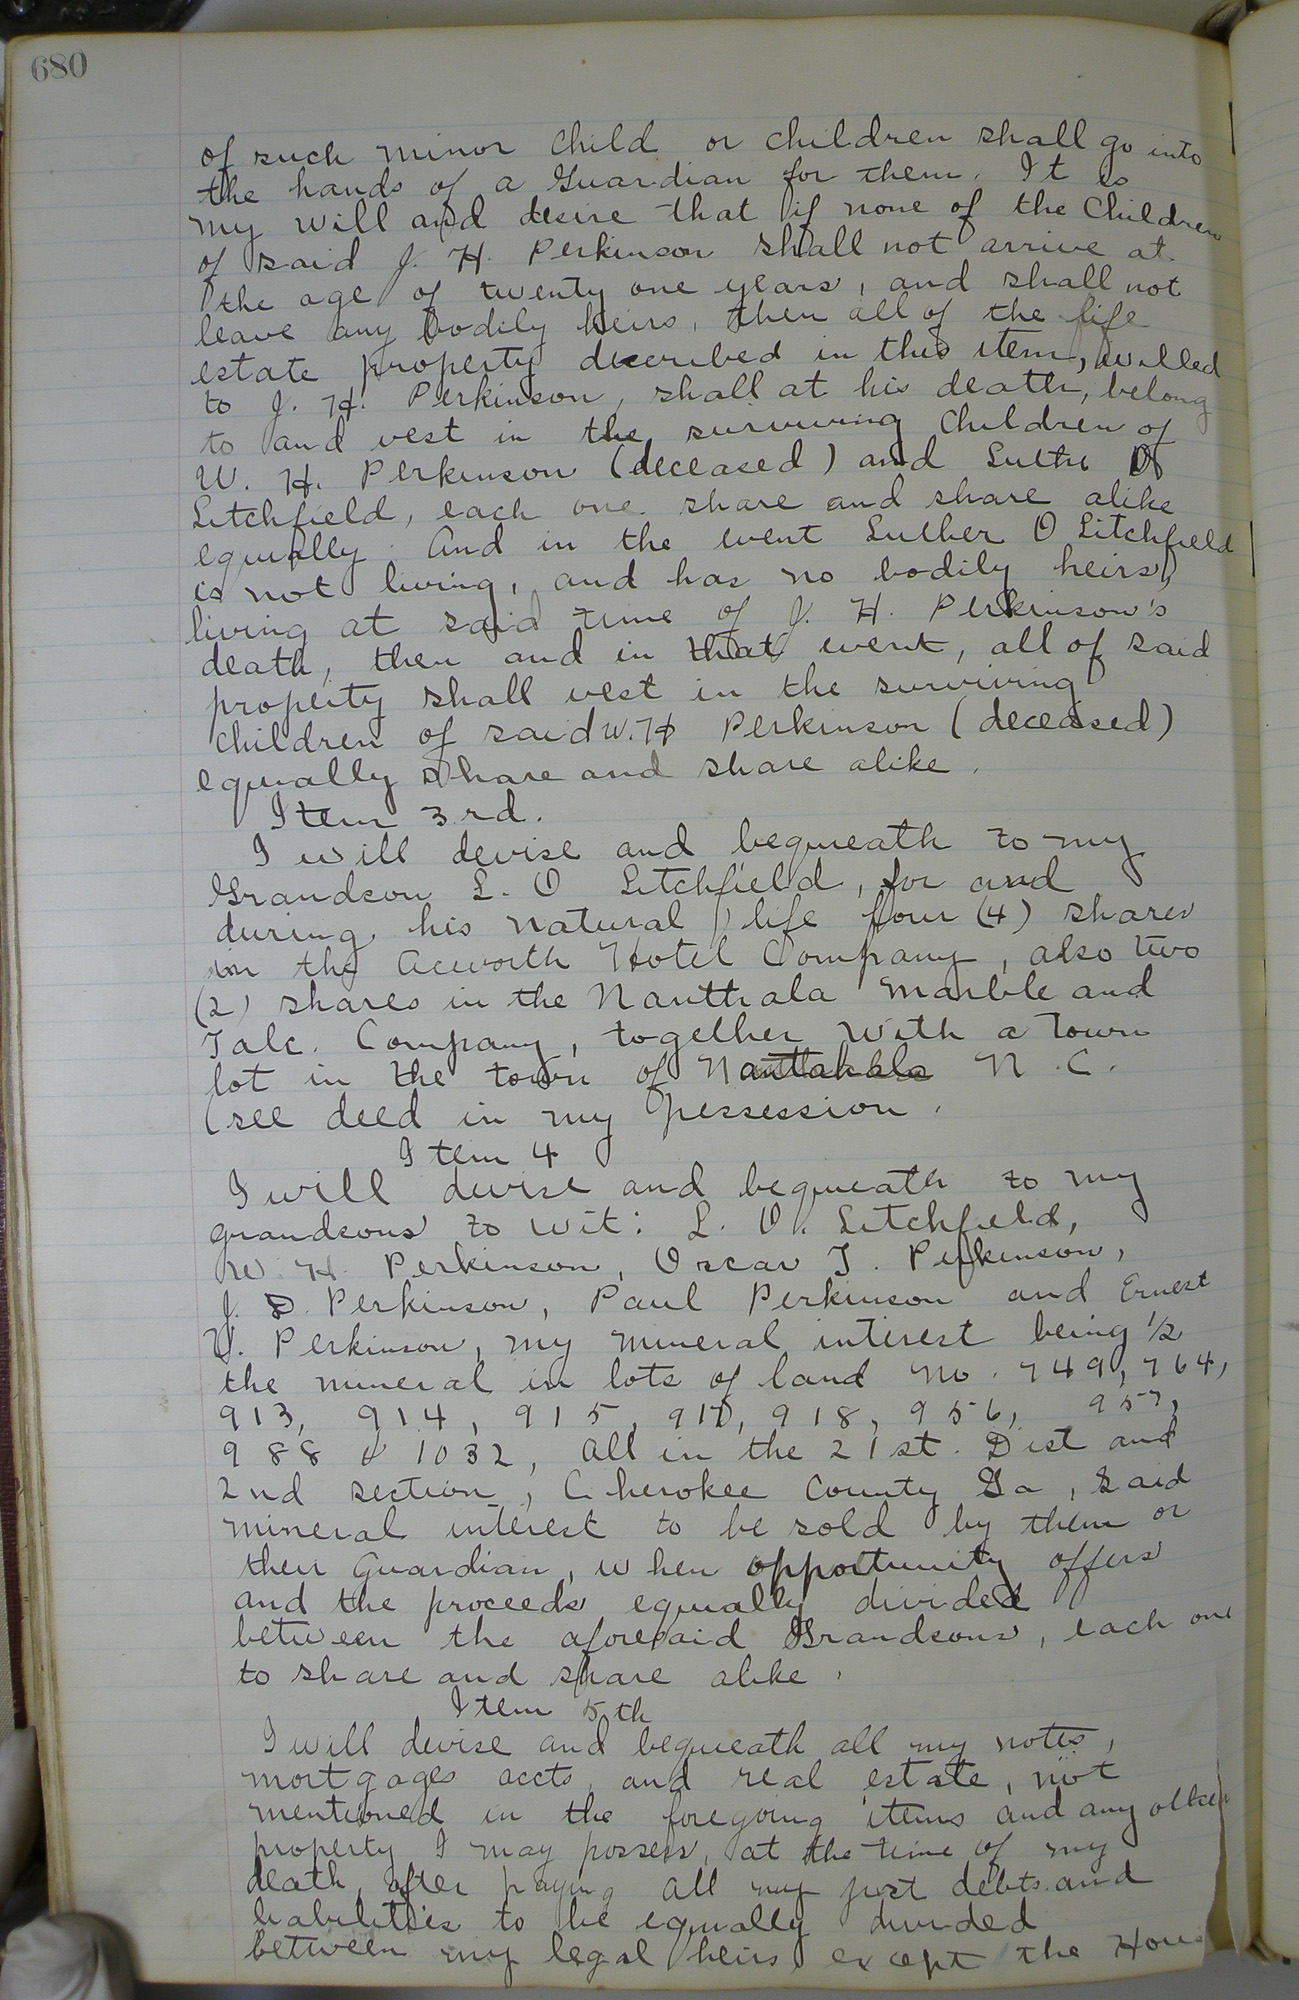 680
of such minor child or children shall go into
the hands of a Guardian for them. It is
my will and desire that if none of the Children
of said J. H. Perkinson shall not arrive at
the age of twenty one years, and shall not
leave any bodily heirs, then all of the life
estate property described in this item, willed
to J. H. Perkinson, shall at his death, belong
to and vest in the surviving Children of
W. H. Perkinson (deceased) and Luther O
Litchfield, each one share and share alike
equally. And in the event Luther O Litchfield
is not living, and has no bodily heirs,
living at said time of J. H. Perkinson's
death, then and in that event, all of said
property shall vest in the surviving
children of said W. H Perkinson (deceased)
equally share and share alike.
Item 3rd.
I will devise and bequeath to my
Grandson L. O Litchfield, for and
during his natural life four (4) shares
in the Acworth Hotel Company, also two
(2) shares in the Nanthala Marble and
Talc. Company, together with a Town
lot in the town of Nanttahala N.C.
(see deed in my pessession.
Item 4
I will devise and bequeath to my
grandsons to wit: L. O. Litchfield,
W. H. Perkinson, Oscar T. Perkinson,
J. D. Perkinson, Paul Perkinson and Ernest
V. Perkinson, my mineral interest being 1/2
the mineral in lots of land No. 749, 764,
913, 914, 915, 917, 918, 956, 957,
988 & 1032, all in the 21st. Dist and
2nd section, Cherokee County Ga, said
mineral interest to be sold by them or
their Guardian, when opportunity offers
and the proceeds equally divided
between the aforesaid Grandsons, each one
to share and share alike.
Item 5th
I will devise and bequeath all my notes,
mortgages accts, and real estate, not
mentioned in the foregoing items and any other
property I may possess, at the time of my
death, after paying all my just debts and
liabilities to be equally divided
between my legal heirs except the